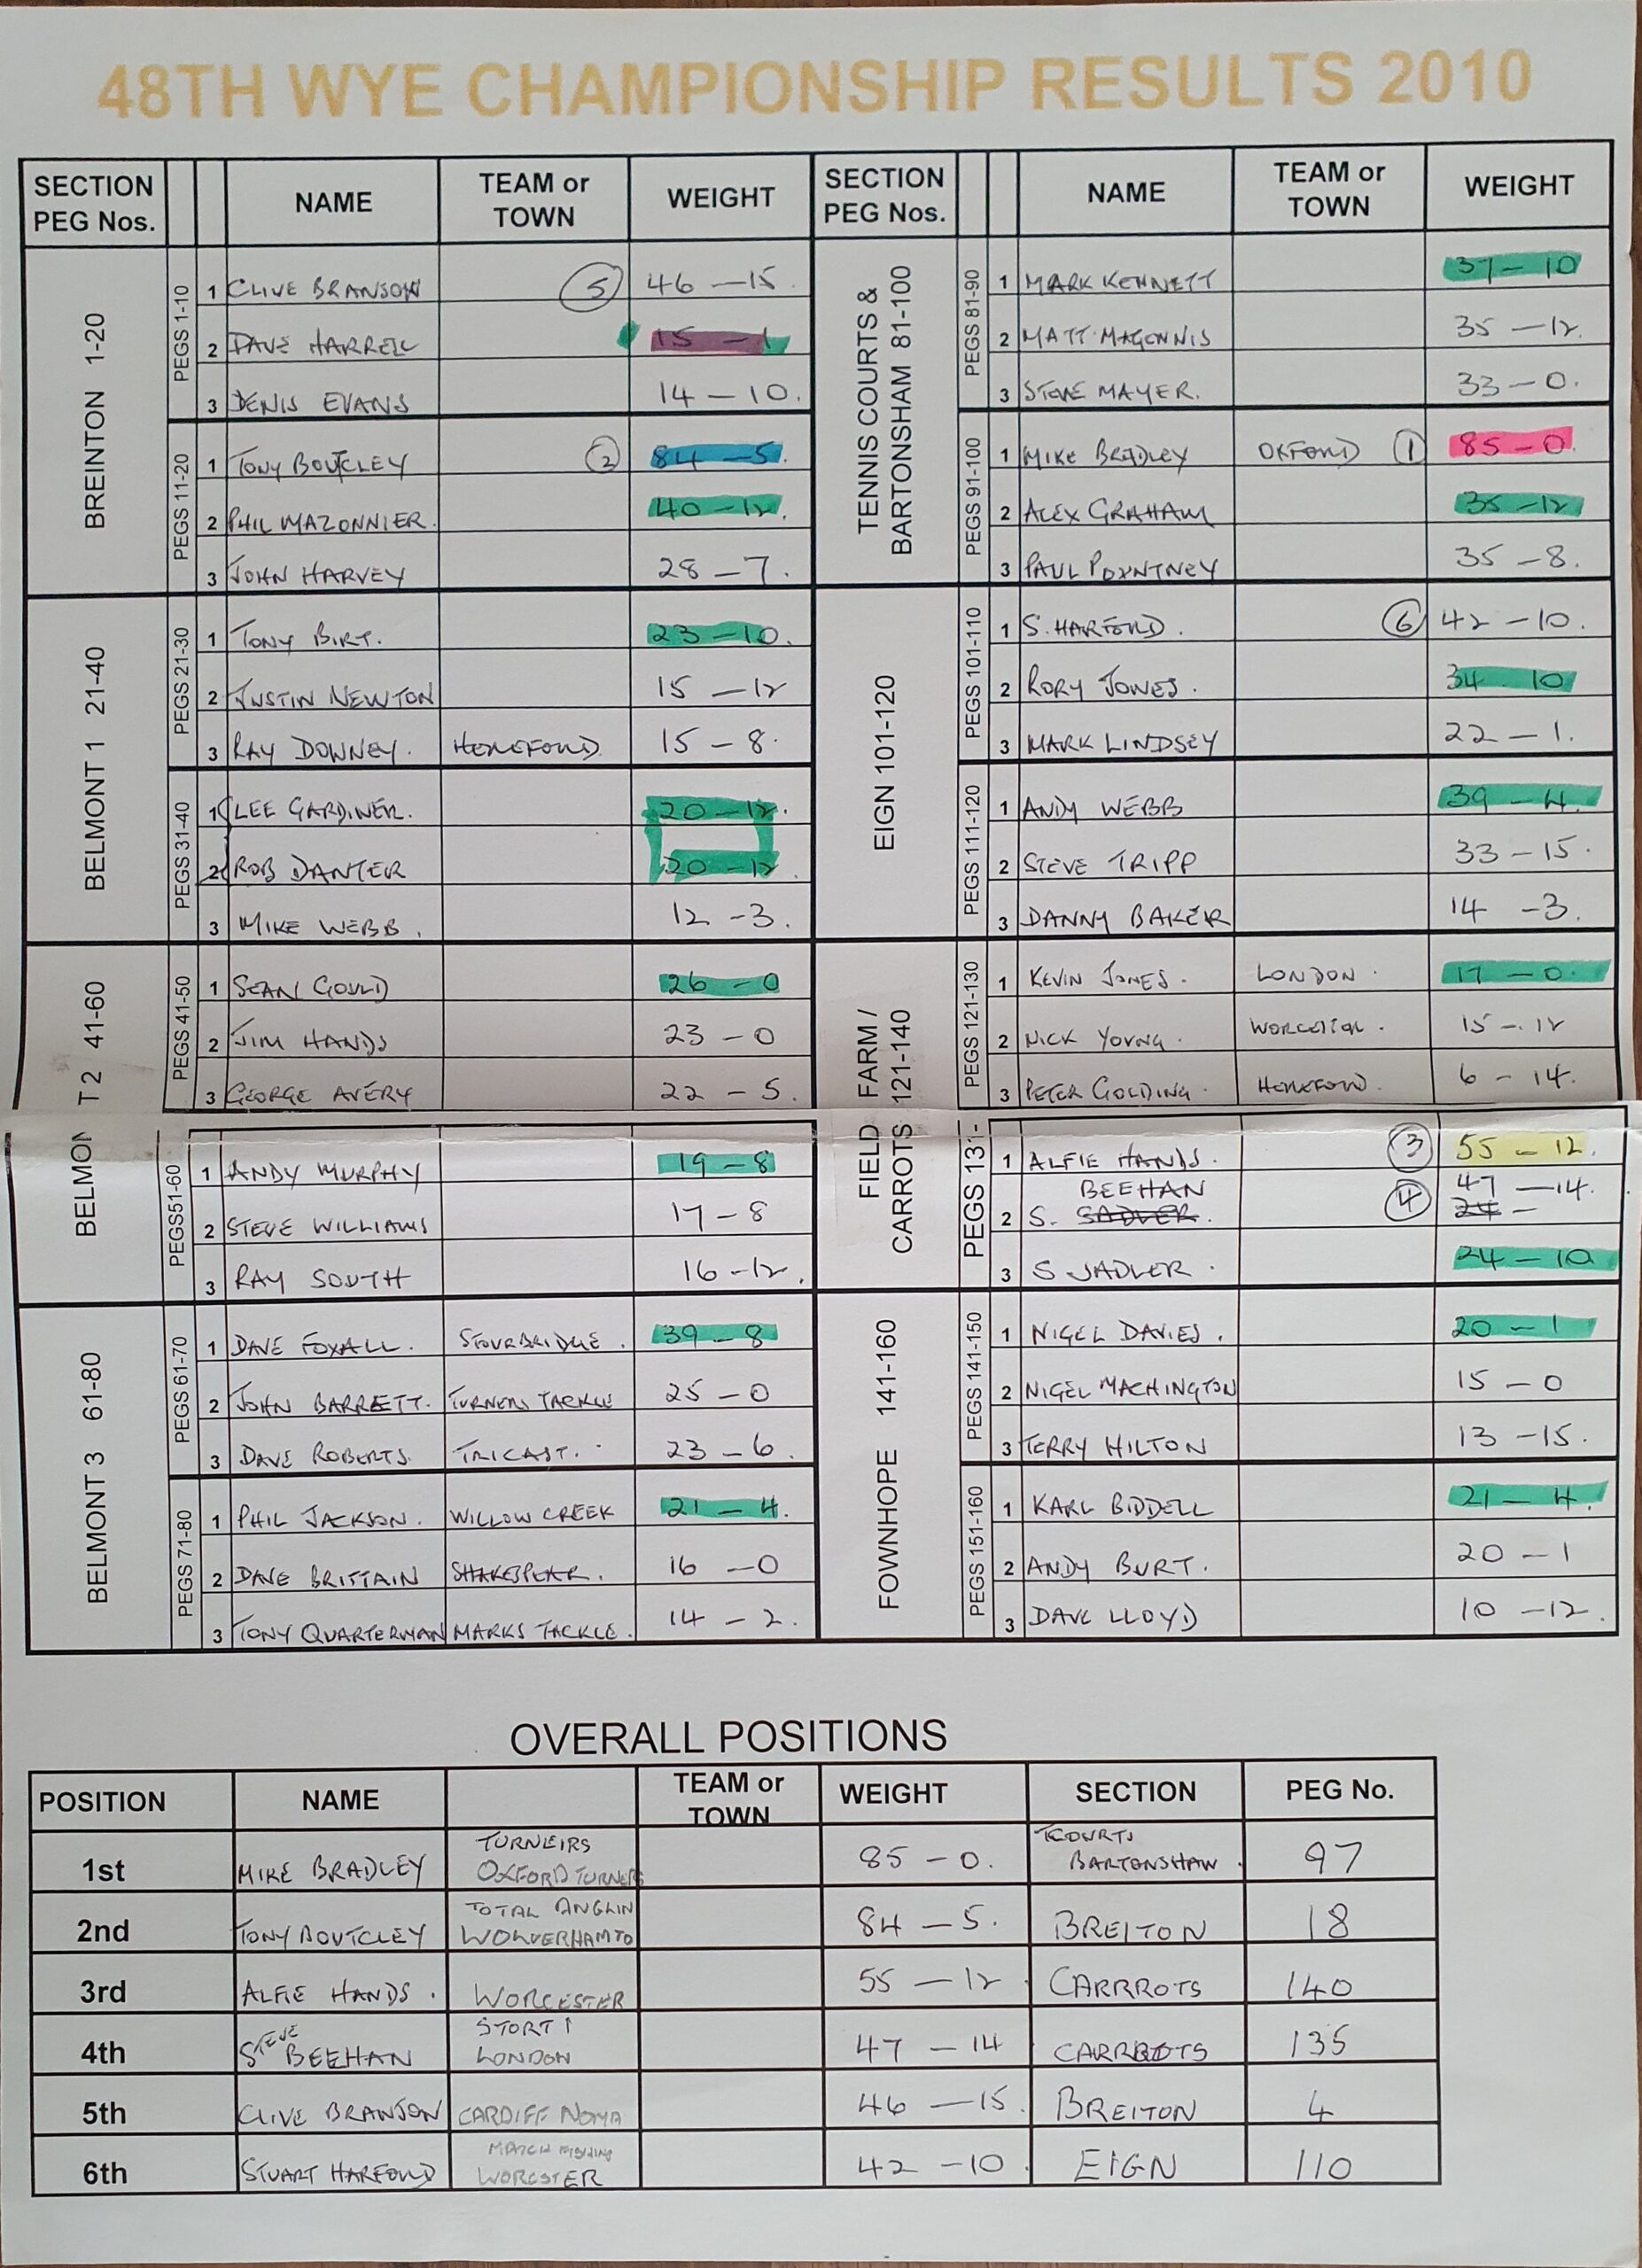 48TH WYE CHAMPIONSHIP RESULTS 2010
SECTION PEG Nos. NAME TEAM or TOWN WEIGHT
BREINTON 1-20
PEGS 1-10
1 CLIVE BRANSON 5 46 - 15.
2 DAVE HARRELL 15 - 1
3 DENIS EVANS 14 - 10.
PEGS 11-20
1 TONY BOUTCLEY 2 84 - 5.
2 PHIL MAZONNIER. 40 - 12.
3 JOHN HARVEY 28 - 7.
BELMONT 1 21-40
PEGS 21-30
1 TONY BIRT. 23 - 10.
2 JUSTIN NEWTON 15 - 12
3 RAY DOWNEY. HEREFORD. 15 - 8.
PEGS 31-40
1 LEE GARDINER. 20 - 12.
2 ROB DANTER 20 - 12
3 MIKE WEBB. 12 - 3.
BELMONT 2 41-60
PEGS 41-50
1 SEAN GOULD 26 - 0
2 JIM HANDS 23 - 0
3 GEORGE AVERY 22 - 5.
PEGS51-60
1 ANDY MURPHY 19 - 8
2 STEVE WILLIAMS 17 - 8
3 RAY SOUTH 16 - 12.
BELMONT 3 61-80
PEGS 61-70
1 DAVE FOXALL. STOURBRIDGE. 39 - 8
2 JOHN BARRETT. TURNERS TACKLE 25 - 0
3 DAVE ROBERTS. TRICAST. 23 - 6.
PEGS 71-80
1 PHIL JACKSON. WILLOW CREEK 21 - 4.
2 DAVE BRITTAIN SHAKESPEAR. 16 - 0
3 TONY QUARTERMAN MARKS TACKLE. 14 - 2.
SECTION PEG Nos. NAME TEAM or TOWN WEIGHT
TENNIS COURTS &
BARTONSHAM 81-100
PEGS 81-90
1 MARK KENNETT 37 - 10
2 MATT MAGENNIS 35 - 12.
3 STEVE MAYER. 33 - 0.
PEGS 91-100
1 MIKE BRADLEY OXFORD 1 85 - 0.
2 ALEX GRAHAM 35 - 12
3 PAUL POYNTNEY 35 - 8.
EIGN 101-120
PEGS 101-110
1 S. HARFORD. 6 42 - 10.
2 RORY JONES. 34 10
3 MARK LINDSEY 22 - 1.
PEGS 111-120
1 ANDY WEBB 39 - 4.
2 STEVE TRIPP 33 - 15.
3 DANNY BAKER 14 - 3.
FIELD FARM /
CARROTS 121-140
PEGS 121-130
1 KEVIN JONES. LONDON. 17 - 0.
2 NICK YOUNG. WORCESTER. 15 - 12
3 PETER GOLDING. HEREFORD. 6 - 14.
PEGS 131-
1 ALFIE HANDS. 3 55 - 12.
BEEHAN 47 - 14.
2 S. SADLER. 4 24 -
3 S SADLER. 24 - 10
FOWNHOPE 141-160
PEGS 141-150
1 NIGEL DAVIES. 20 - 1
2 NIGEL MACHINGTON 15 - 0
3 TERRY HILTON 13 - 15.
PEGS 151-160
1 KARL BIDDELL 21 - 4.
2 ANDY BURT. 20 - 1
3 DAVE LLOYD 10 - 12.
OVERALL POSITIONS
POSITION NAME TEAM or TOWN WEIGHT SECTION PEG No.
TURNEIRS TCOURTS
1st MIKE BRADLEY OXFORD TURNERS 85 - 0. BARTONSHAW. 97
TOTAL ANGLIN
2nd TONY BOUTCLEY WOLVERHAMTO 84 - 5. BREITON 18
3rd ALFIE HANDS. WORCESTER 55 - 12. CARRROTS 140
STORT
4th STEVE BEEHAN LONDON 47 - 14 CARROTS 135
5th CLIVE BRANSON CARDIFF NOMA 46 - 15. BREITON 4
MATCH FISHING
6th STUART HARFORD WORCSTER 42 - 10. EIGN 110